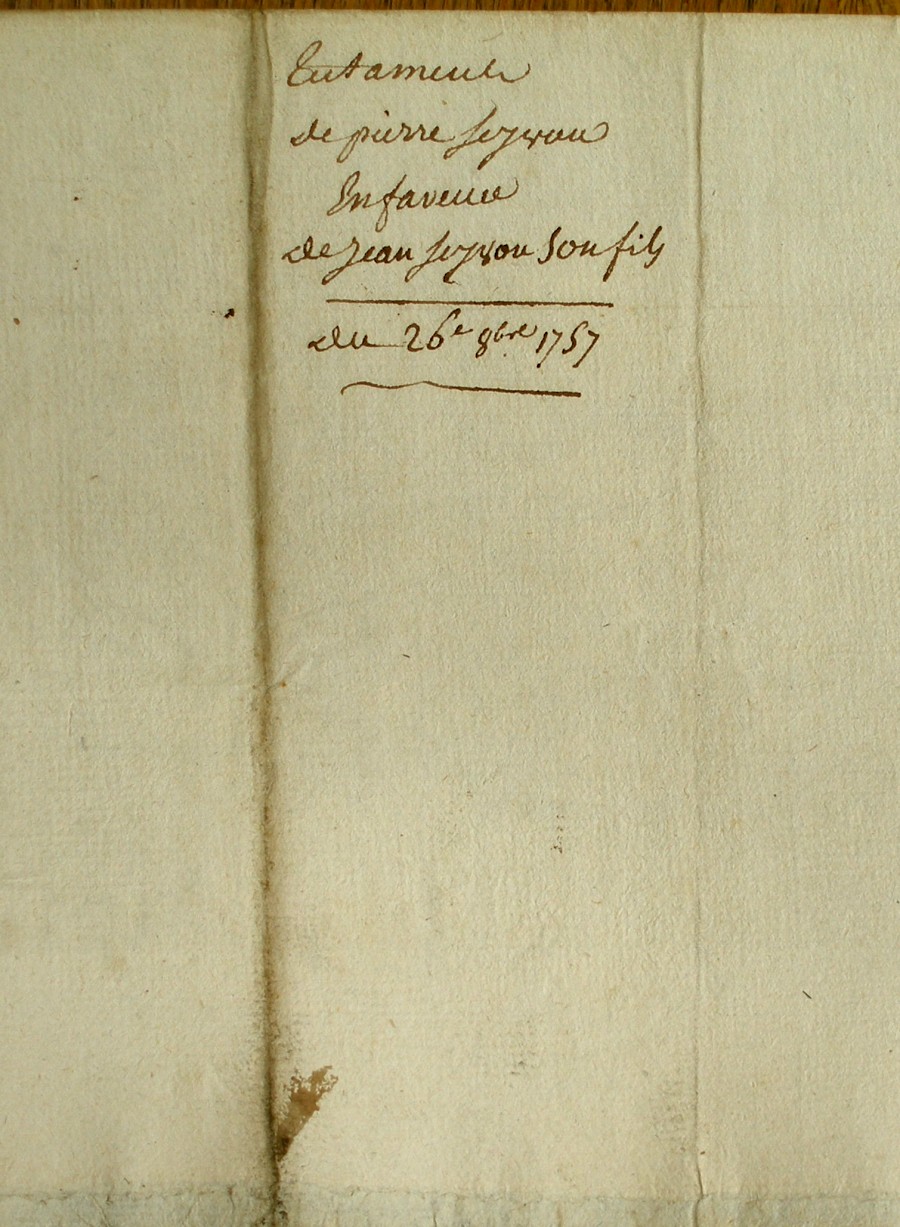 Testament
de pierre seyvon
En faveur
de Jean seyvon son fils
du 26e 8bre 1757